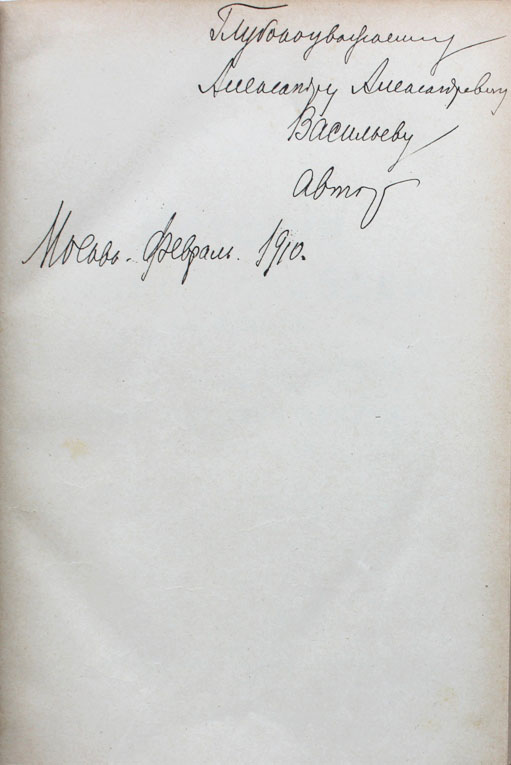 Глубокоуважаемому
Александру Александровичу
Васильеву
автор
Москва. Февраль. 1910.